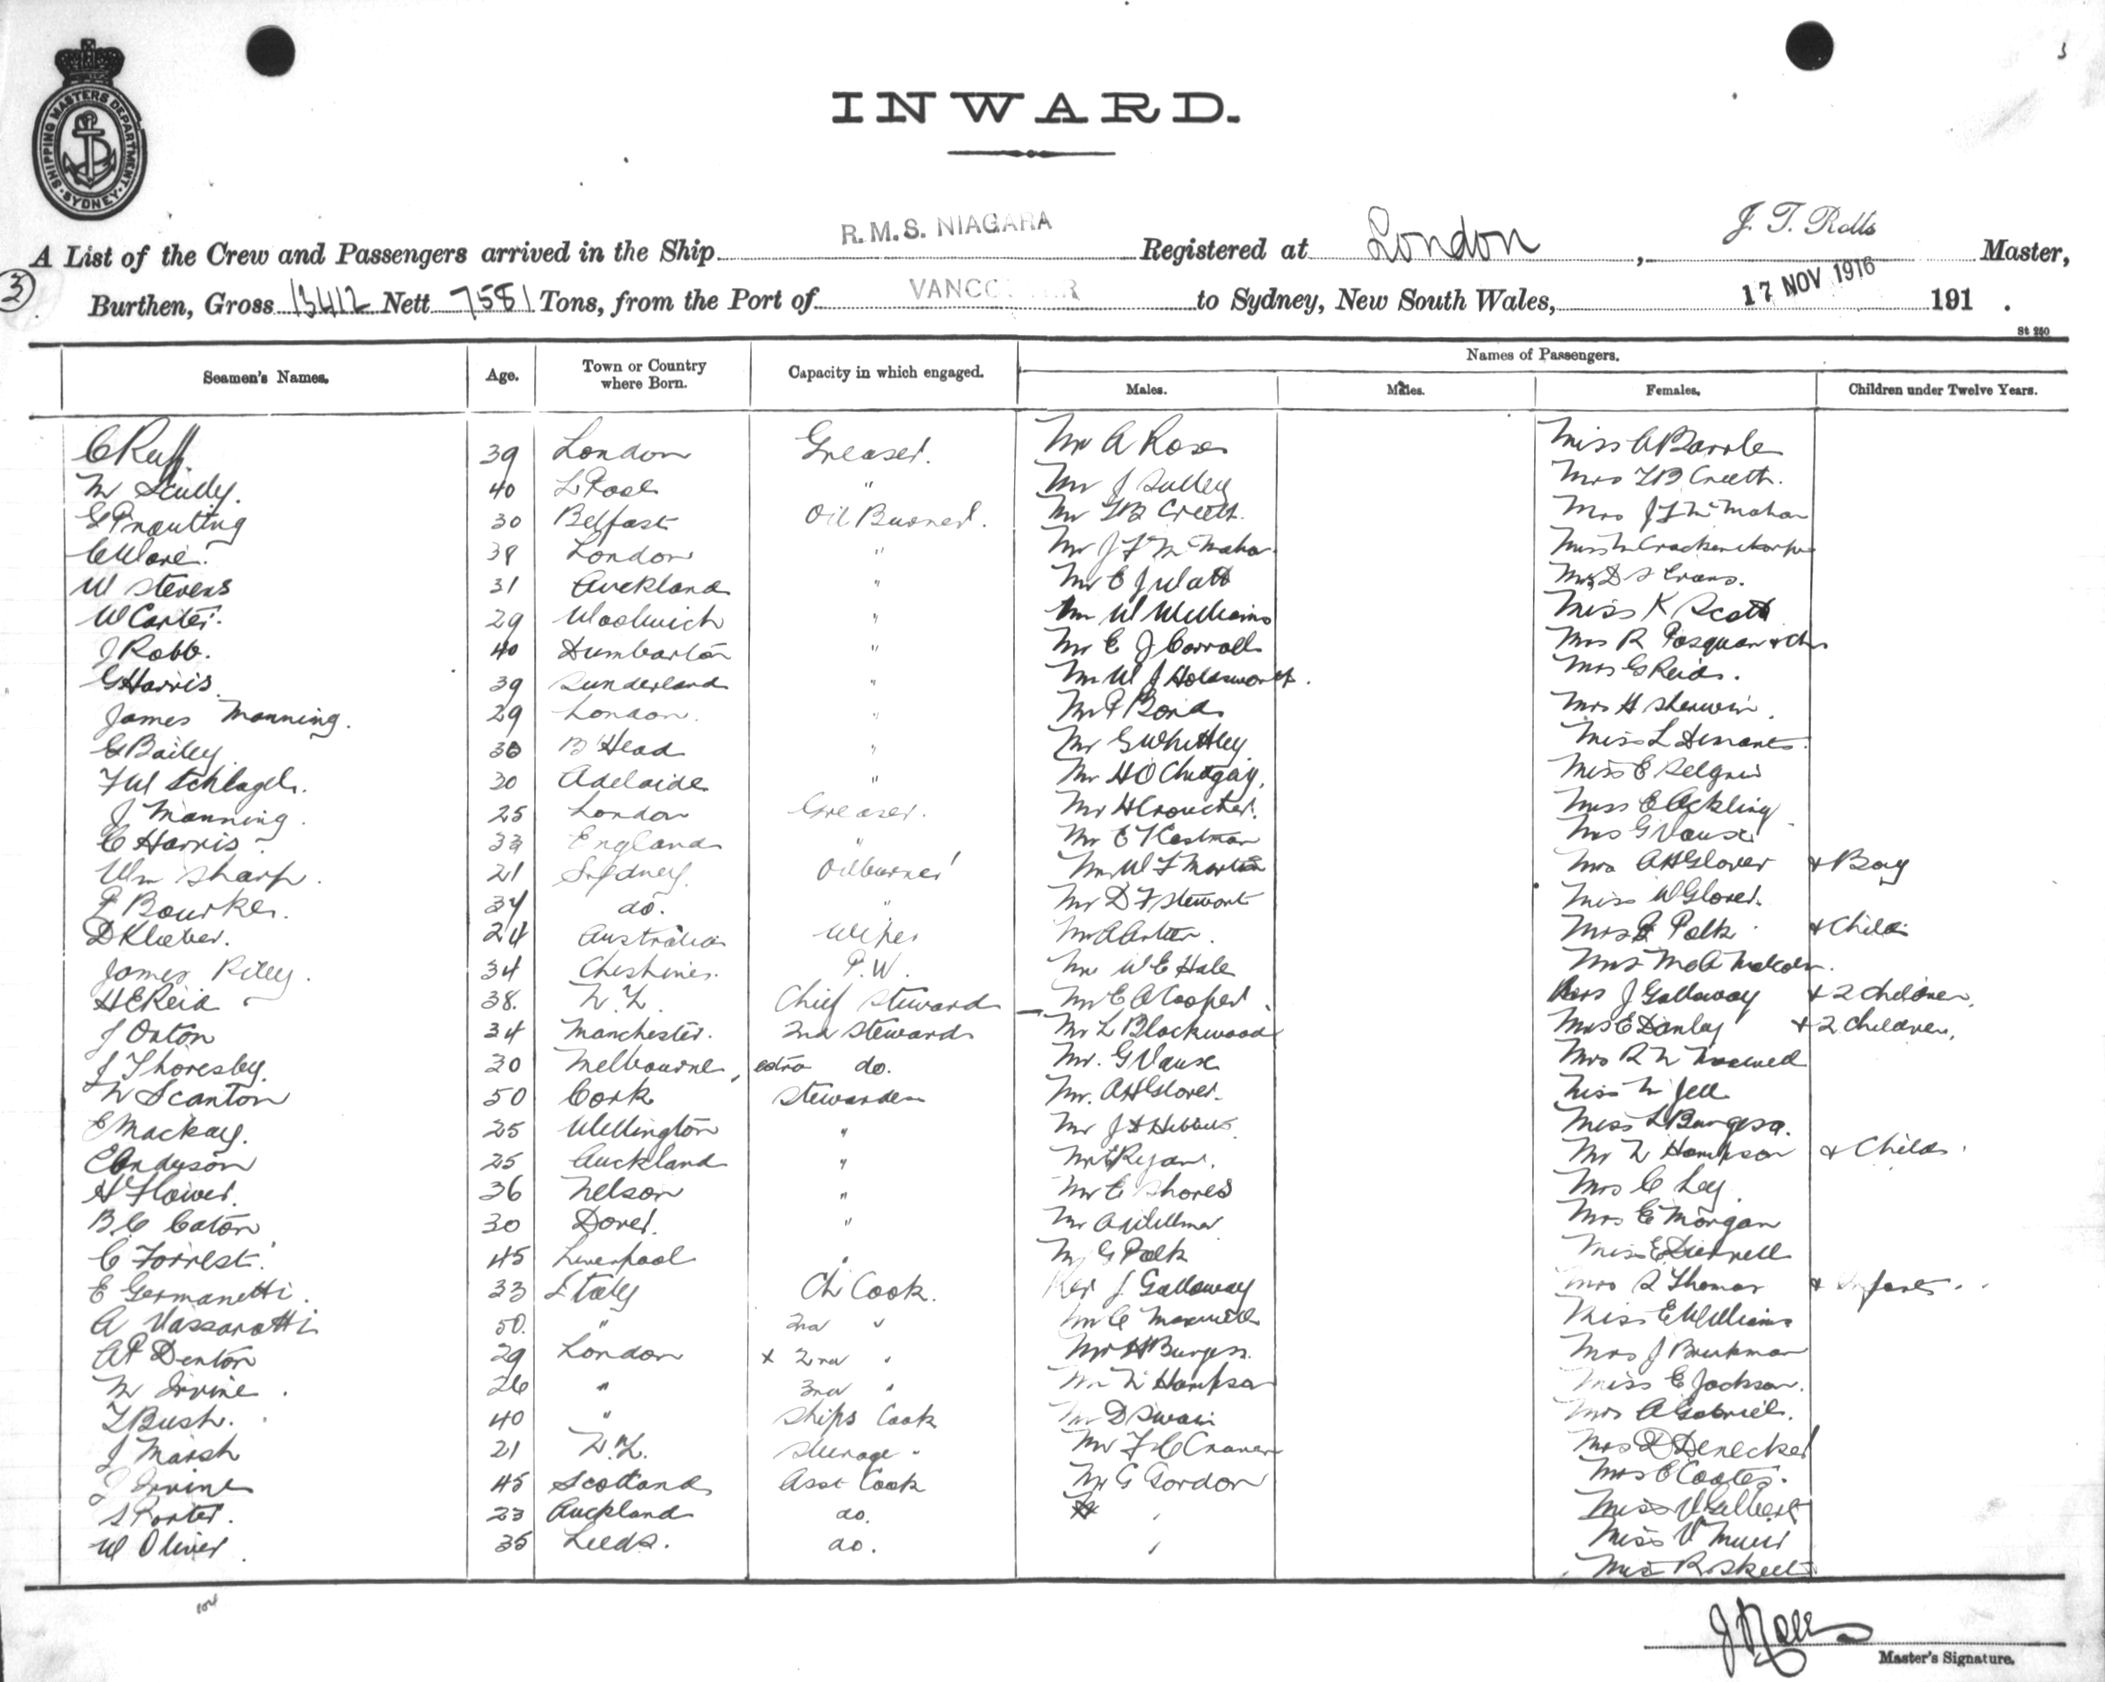 3
SHIPPING MASTERS DEPARTMENT
SYDNEY
INWARD.
A List of the Crew and Passengers arrived in the Ship R.M.S. NIAGARA Registered at London, J. T. Rolls Master,
3
Burthen, Gross 13412 Nett 7581 Tons, from the Port of VANCOUVER to Sydney, New South Wales, 17 NOV 1916 191 .
St 250
Names of Passengers.
Seamen's Names. Age. Town or Country where Born. Capacity in which engaged. Males. Males. Females. Children under Twelve Years.
C Ruff 39 London Greaser. Mr A Rose Miss A
Scully. 40 L'Pool " Mr J Sulley Mrs T B Creeth.
G 30 Belfast Oil Burner. Mr T B Creeth. Mrs J F McMahon
C Ware. 39 London " Mr J F McMahon
W Stevens 31 Auckland " Mr E J Watt Mrs D S Evans.
W Carter. 29 Woolwich " Mr W Williams Miss K Scott
J Robb. 40 Dumbarton " Mr E J Carroll Mrs R
G Harris 39 Sunderland " Mr W J Holdsworth. Mrs G Reid.
James Manning. 29 London. " Mr P Bond Mrs H Sherwin.
G Bailey. 30 B'Head " Mr G Whittley Miss L
F W Schlagel. 30 Adelaide " Mr H O Miss E
J Manning. 25 London Greaser. Mr H Croucher. Miss E Ackling
C Harris 33 England " Mr E Kestman Mrs G Vause
Wm Sharp. 21 Sydney. Oilburner Mr W F Martin Mrs A H Glover & Boy
P Bourke. 34 do. " Mr D F Stewart Miss W Glover.
D Klieber. 24 Australia Wiper Mr A Mrs G Polk & Child
James Riley. 34 Cheshire. P.W. Mr W E Hale Mrs Malcolm.
H E Reid 38. N.Z. Chief Steward Mr E A Cooper. Mrs J Galloway & 2 Children.
J Oxton 34 Manchester. 2nd Steward Mr L Blackwood Mrs E Danley & 2 Children.
J Thoresby. 30 Melbourne, extra do. Mr. G Vause Mrs R N Maxwell
N Scanlon 50 Cork Stewardess Mr. A H Glover. Miss N Jell
E Mackay. 25 Wellington " Mr J H Miss L Burgess.
E Anderson 25 Auckland " Mr E Ryan. Mr N Hampson & Child.
H Flower. 36 Nelson " Mr E Shores Mrs C Ley.
B. C Caton 30 Dover. " Mr A Willmer Mrs E Morgan
C Forrest. 45 Liverpool " Mr G Polk Miss E
E Germanetti. 33 Italy Ch Cook. Rev J Galloway Mrs R Thomas & Infant.
A Vassarotti 50. " 2nd " Mr C Maxwell Miss E Williams
A P Denton 29 London x 2nd " Mr H Burgess. Mrs J Brinkman
N Irvine. 26 " 3rd " Mr N Hampson Miss E Jackson.
T Bush. 40 " Ships Cook Mr D Swain Mrs A Gabriel.
J Marsh 21 N.Z. Steerage " Mr F C Craner Mrs D Denecker
J Irvine 45 Scotland Asst Cook Mr G Gordon Mrs E Coates.
S Porter. 23 Auckland do. Miss V Gilbert
W Oliver. 35 Leeds. do. Miss V Muir
Miss R Skeet
104
J Rolls
Master's Signature.